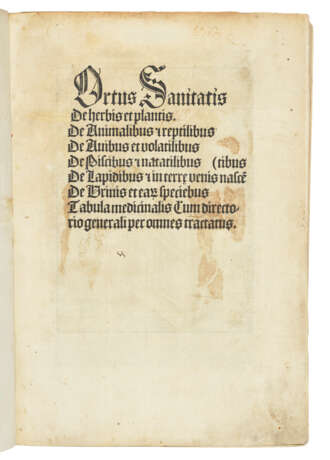 Ortus Sanitatis
De herbis et plantis.
De Animalibus ⁊ reptilibus
De Auibus et volatilibus
De Piscibus ⁊ natatilibus (tibus
De Lapidibus ⁊ in terre venis nascē
De Urinis et earꝝ speciebus
Tabula medicinalis Cum directo-
rio generali per omnes tractatus.